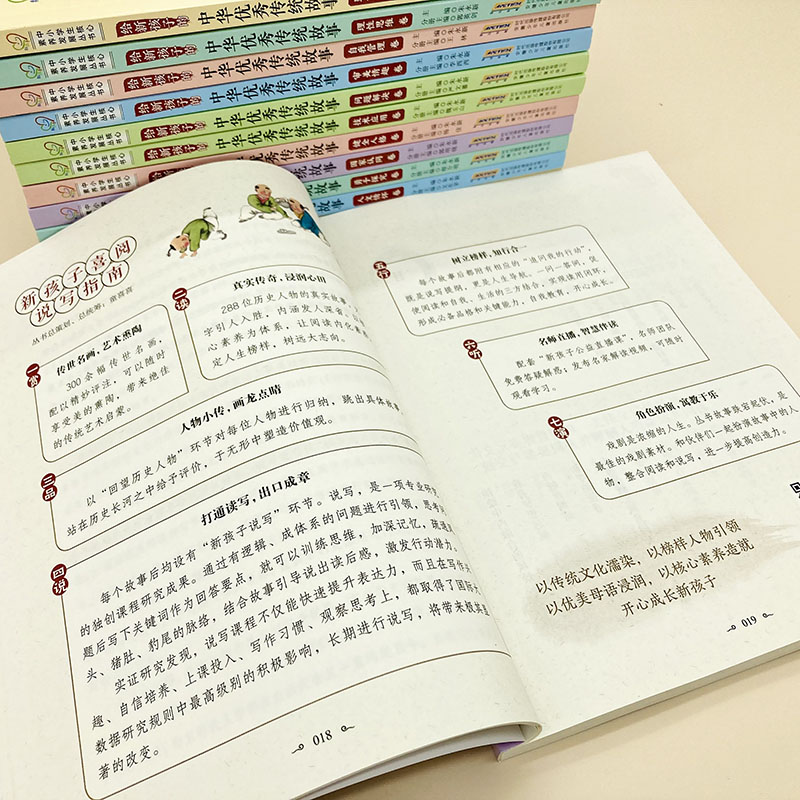 给新孩子的
中华优秀传统故事
理性思维卷
给新孩子的
中华优秀传统故事
自我管理卷
给新孩子的
中华优秀传统故事
审美情趣卷
给新孩子的
中华优秀传统故事
问题解决卷
给新孩子的
中华优秀传统故事
技术应用卷
中华优秀传统故事
健全人格卷
国家认同卷
勇于探究卷
人文情怀卷
新孩子喜阅
说写指南
丛书总策划、总统筹：童喜喜
一赏
传世名画，艺术熏陶
300余幅传世名画，
配以精妙评注，可以随时
享受美的熏陶，带来绝佳
的传统艺术启蒙。
二读
真实传奇，浸润心田
288位历史人物的真实故事
字引人入胜，内涵发人深省
心素养为体系，让阅读内化素
定人生榜样，树远大志向。
三品
人物小传，画龙点睛
以“回望历史人物”环节对每位人物进行归纳，跳出具体故事
站在历史长河之中给予评价，于无形中塑造价值观。
四说
打通读写，出口成章
每个故事后均设有“新孩子说写”环节。说写，是一项专业研究
的独创课程研究成果。通过有逻辑、成体系的问题进行引领，思考问
题后写下关键词作为回答要点，就可以训练思维，加深记忆，疏说
头、猪肚、豹尾的脉络，结合故事引导说出读后感，激发行动潜力。
实证研究发现，说写课程不仅能快速提升表达力，而且在写作兴
趣、自信培养、上课投入、写作习惯、观察思考上，都取得了国际
数据研究规则中最高级别的积极影响，长期进行说写，将带来极显
著的改变。
018
五行
树立榜样，知行合一
每个故事后都附有相应的“追问我的行动”，
既是说写提纲，更是人生导航，一问一答间，促
使阅读和自我、生活的三方结合，实现读用闭环，
形成必备品格和关键能力，自我教育，开心成长。
六听
名师直播，智慧伴读
配套“新孩子公益直播课”，名师团队
免费答疑解惑；发布名家解读视频，可随时
观看学习。
七演
角色扮演，寓教于乐
戏剧是浓缩的人生。丛书故事跌宕起伏，是
最佳的戏剧素材。和伙伴们一起扮演故事中的人
物，整合阅读和说写，进一步提高创造力。
以传统文化濡染，以榜样人物引领
以优美母语浸润，以核心素养造就
开心成长新孩子
019